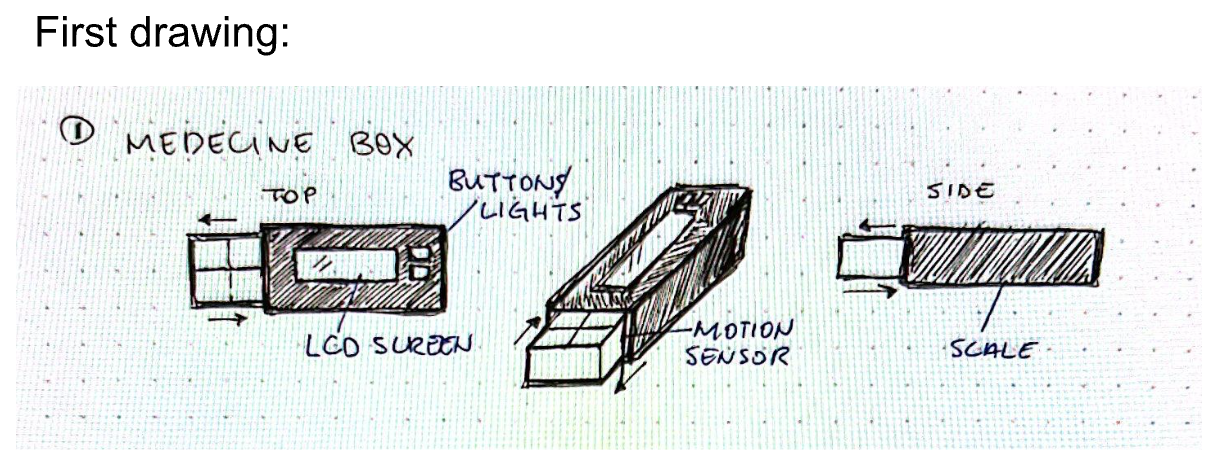 First drawing:
① MEDECINE BOX
TOP
BUTTONS/
LIGHTS
LCD SCREEN
MOTION
SENSOR
SIDE
SCALE